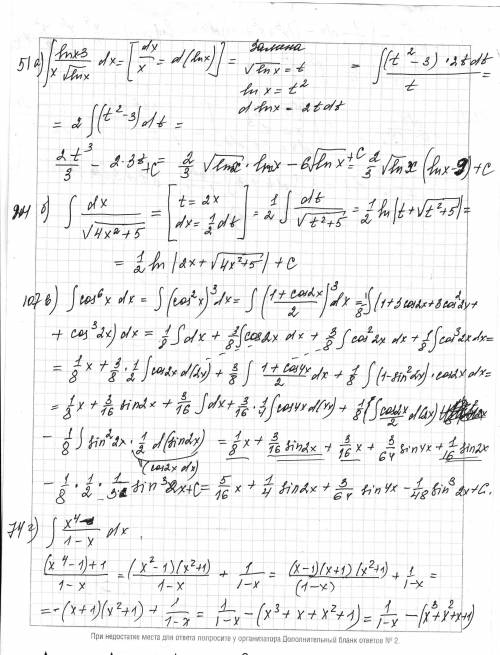 51 а) ∫ (ln x-3)/(x √ln x) dx = [dx/x = d(ln x)] = замена √ln x = t = ∫ (t²-3)·2t dt / t =
ln x = t²
d ln x = 2t dt
= 2 ∫ (t²-3) dt =
2t³/3 - 2·3t +C = 2/3 √ln x · ln x - 6√ln x +C = 2/3 √ln x (ln x-9)+C
б) ∫ dx/√(4x²+5) = [t = 2x dx = 1/2 dt] = 1/2 ∫ dt/√(t²+5) = 1/2 ln|t+√(t²+5)| =
= 1/2 ln |2x+√(4x²+5)| + C
107 в) ∫ cos⁶x dx = ∫ (cos²x)³ dx = ∫ ((1+cos2x)/2)³ dx = 1/8 ∫ (1+3cos2x+3cos²2x+
+ cos³2x) dx = 1/8 ∫ dx + 3/8 ∫ cos2x dx + 3/8 ∫ cos²2x dx + 1/8 ∫ cos³2x dx =
= 1/8 x + 3/8 · 1/2 ∫ cos2x d(2x) + 3/8 ∫ (1+cos4x)/2 dx + 1/8 ∫ (1-sin²2x)·cos2x dx =
= 1/8 x + 3/16 sin2x + 3/16 ∫ dx + 3/16 · 1/4 ∫ cos4x d(4x) + 1/8 ∫ cos2x/2 d(2x)
- 1/8 ∫ sin²2x · 1/2 d(sin2x) = 1/8 x + 3/16 sin2x + 3/16 x + 3/64 sin4x + 1/16 sin2x
(cos2x dx)
- 1/8 · 1/2 · 1/3 sin³2x + C = 5/16 x + 1/4 sin2x + 3/64 sin4x - 1/48 sin³2x + C.
74 г) ∫ x⁴/(1-x) dx
((x⁴-1)+1)/(1-x) = (x²-1)(x²+1)/(1-x) + 1/(1-x) = (x-1)(x+1)(x²+1)/(1-x) + 1/(1-x) =
= -(x+1)(x²+1) + 1/(1-x) = 1/(1-x) - (x³+x+x²+1) = 1/(1-x) - (x³+x²+x+1)
При недостатке места для ответа попросите у организатора Дополнительный бланк ответов № 2.